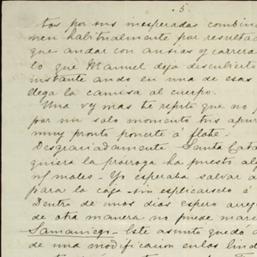 .5.
tos por sus inesperadas combina
men habitualmente por resultad
que andar con ansias y carrera
lo que Manuel deja descubierto
instante ando en una de esas
llega la camisa al cuerpo.
Una vez mas te repito que no p
por un solo momento tus apur
muy pronto ponerte á flote.
Desgraciadamente Santa Cata
quiera la proroga ha puesto alg
normales - Yo esperaba salvar a
para la caja sin esplicarselo é
Dentro de unos dias espero arreg
de otra manera no puede marc
Samaniego - Este asunto quedó a
de una modificacion en los lind